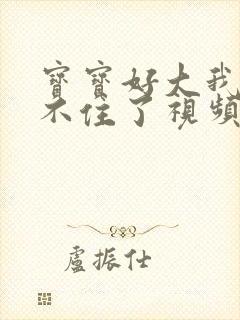 寶寶好大我
不住了視頻
盧振仕